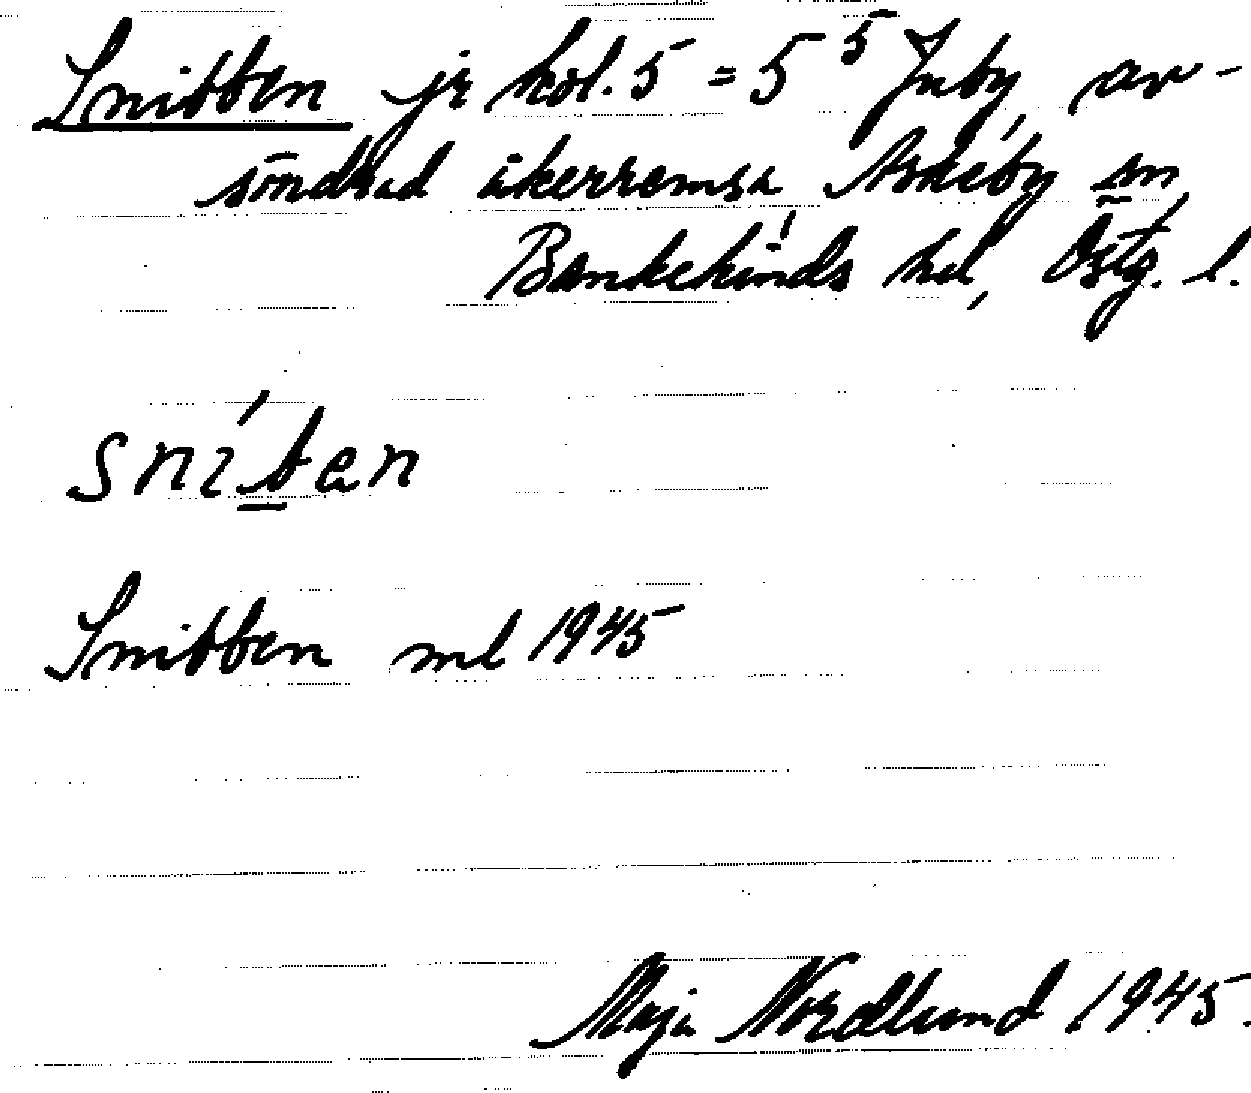 Snibben jr kol. 5 = 5⁵ Juby, av-
söndrad åkerremsa Askeby sn,
Bankekinds hd, Östg. l.
sní̀ben
Snibben ml 1945
Maja Nordlund 1945.